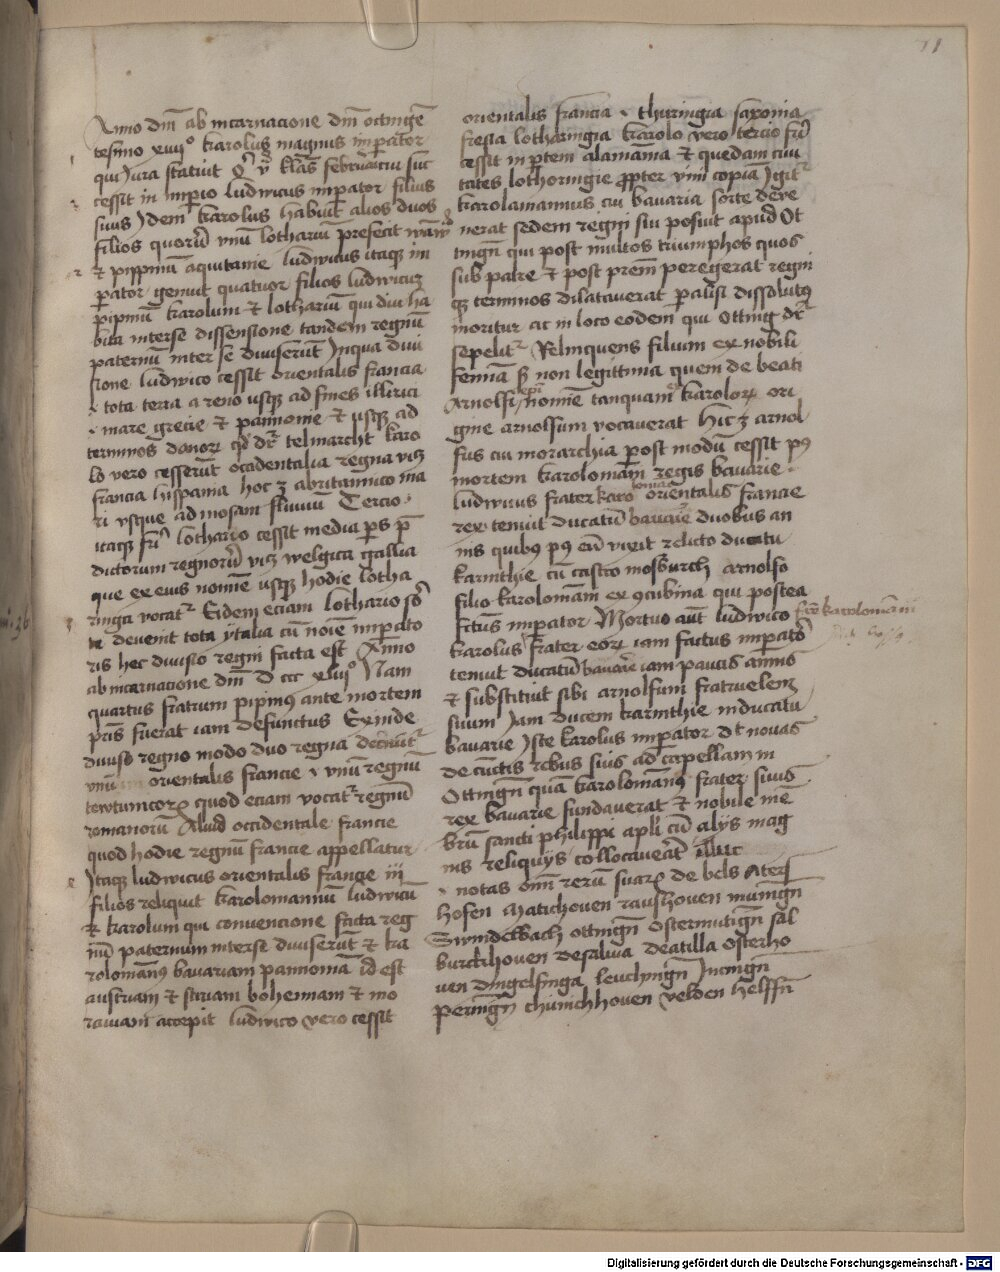 71
Anno dm̄ ab incarnacione dm̄ octingē
tesimo xiiijº karolus magnus imperator
qui Jura statuit vº kłas februarii suc
cessit in imperio ludwicus imperator filius
suus Jdem karolus habuit alios duos
filios quorū vnū lothariū prefecit
et pippinū aquitanie ludwicus itaque im
perator genuit quatuor filios ludwicum
pipinū karolum et lothariū qui diu ha
bita interse dissensione tandem regnū
paternū inter se diuiserūt Jn qua diui
sione ludwico cessit orientalis francia
i tota terra a reno usque ad fines illirici
i mare grecie et pannonie et usque ad
terminos danorum qd dr̄ telmarcht karo
lo vero cesserūt occidentalia regna
francia hispania hoc ē abritannico ma
ri vsque ad mosam fluuiū Tercio
itaque frī lothario cessit media ps p̄
dictorum regnorū welgica gallia
que ex eius nomīe usque hodie lotha
ringa vocatr Eidem eciam lothario
deuenit tota ytalia cū noīe imperato
ris hec diuisio regni facta est Anno
ab incarnacione dm̄ d ccc xiiijº Nam
quartus fratrum pipinus ante mortem
pr̄is fuerat iam defunctus Exinde
diuiso regno modo duo regna
vnū orientalis francie i vnū regnū
tewtunicorum quod eciam vocatr regnū
romanorū Aliud occidentale francie
quod hodie regnū francie appellatur
Jtaque ludwicus orientalis frange iij
filios reliquit karolomannū ludwicū
et karolum qui conuencione facta reg
nū paternum interse diuiserūt et ka
rolomanus bauariam pannoniā id est
austriam et stiriam bohemiam et mo
rauiam accepit ludwico vero cessit
orientalis francia i thuringia saxonia
fresia lotharingia karolo vero tercio frī
cessit in partem alamānia et quedam ciui
tates lothoringie propter vini copiā Jgitr
karolamannus cui bauaria sorte deue
nerat sedem regni sui posuit apud Ot
tingn̄ qui post multos triumphos quos
sub patre et post prēm peregerat regni
que terminos dilatauerat paralisi dissolutus
moritur ac in loco eodem qui Otting dr̄
sepelitr Relinquens filium ex nobili
femīa sed non legittima quem de beati
Arnolfi epī nomīe tanquam karolorum ori
gine arnolfum vocauerat
fus cui monarchia post modū cessit
mortem karolomāni regis bauarie
ludwicus frater karolomani orientalis francie
rex tenuit ducatū bauarie duobus an
nis quibus eū vixit relicto ducatu
karinthie cū castro mosburch arnolfo
filio karolomāni ex concubina qui postea
fctus imperator Mortuo aūt ludwico frē karolomāni
karolus frater eorum iam factus imperator
tenuit ducatū bauarie iam paucis annis
et substituit sibi arnolfum fratruelem
suum Jam ducem karinthie in ducatu
bauarie Jste karolus imperator dt nouas
de cūctis rebus suis ad capellam in
Ottingn̄ quā karolomānus frater suus
rex bauarie fundauerat et nobile mē
brū sancti philippi apłi cū alijs mag
nis reliquijs collocauerat illuc
i notas omī rerū suarum de bels Aters
hofen Matichouen ranshouen muningn̄
Swindelbach ottingn̄ Ostermutign̄ sal
burckhouen desilua deatilla Osterho
uen dingelfinga leuchingn̄ Jncingn̄
peringn̄ chimichhouen velden helffn̄
Digitalisierung gefördert durch die Deutsche Forschungsgemeinschaft - DFG